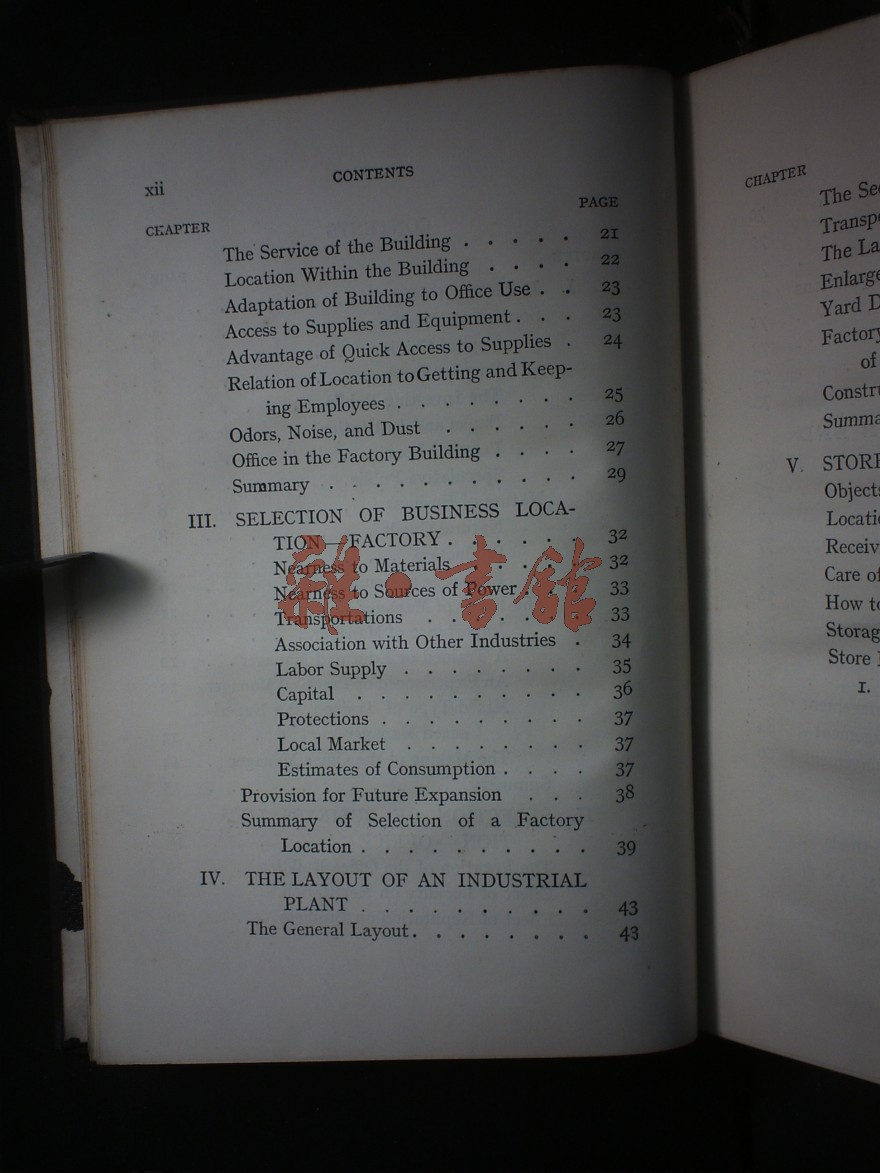 xii
CONTENTS
CHAPTER
PAGE
The Service of the Building . . . . . 21
Location Within the Building . . . . 22
Adaptation of Building to Office Use . . 23
Access to Supplies and Equipment . . . 23
Advantage of Quick Access to Supplies . 24
Relation of Location to Getting and Keep-
ing Employees . . . . . . . . 25
Odors, Noise, and Dust . . . . . . 26
Office in the Factory Building . . . . 27
Summary . . . . . . . . . . 29
III. SELECTION OF BUSINESS LOCA-
TION—FACTORY . . . . . . 32
Nearness to Materials . . . . . 32
Nearness to Sources of Power . . . 33
Transportations . . . . . . . 33
Association with Other Industries . 34
Labor Supply . . . . . . . . 35
Capital . . . . . . . . . . 36
Protections . . . . . . . . . 37
Local Market . . . . . . . . 37
Estimates of Consumption . . . . 37
Provision for Future Expansion . . . 38
Summary of Selection of a Factory
Location . . . . . . . . . . 39
IV. THE LAYOUT OF AN INDUSTRIAL
PLANT . . . . . . . . . . 43
The General Layout . . . . . . . . 43
雜·書館
CHAPTER
The
The
Yard
of
V.
How
Store
I.